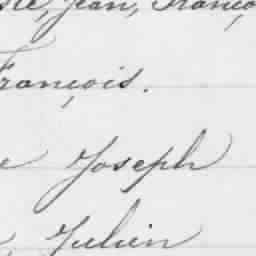 Jean, Franço
François.
e Joseph
Julien